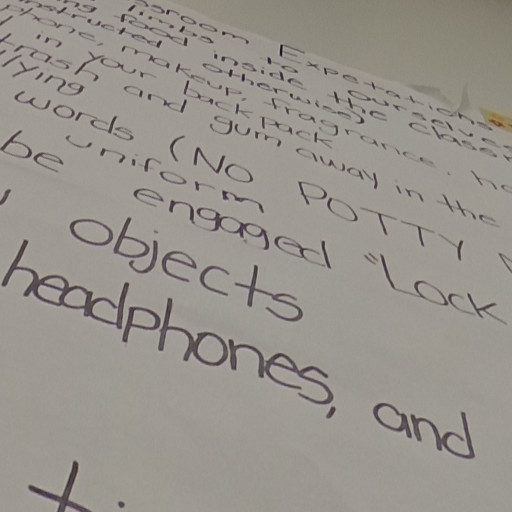 sroom Expetations
limbs to ourselves
food inside the classr
nstructed otherwise)
phone, makeup, fragrance, he
in your backpack
trash and gum away in the
lying words (NO POTTY
be uniform
engaged "Lock
objects
headphones, and
ti